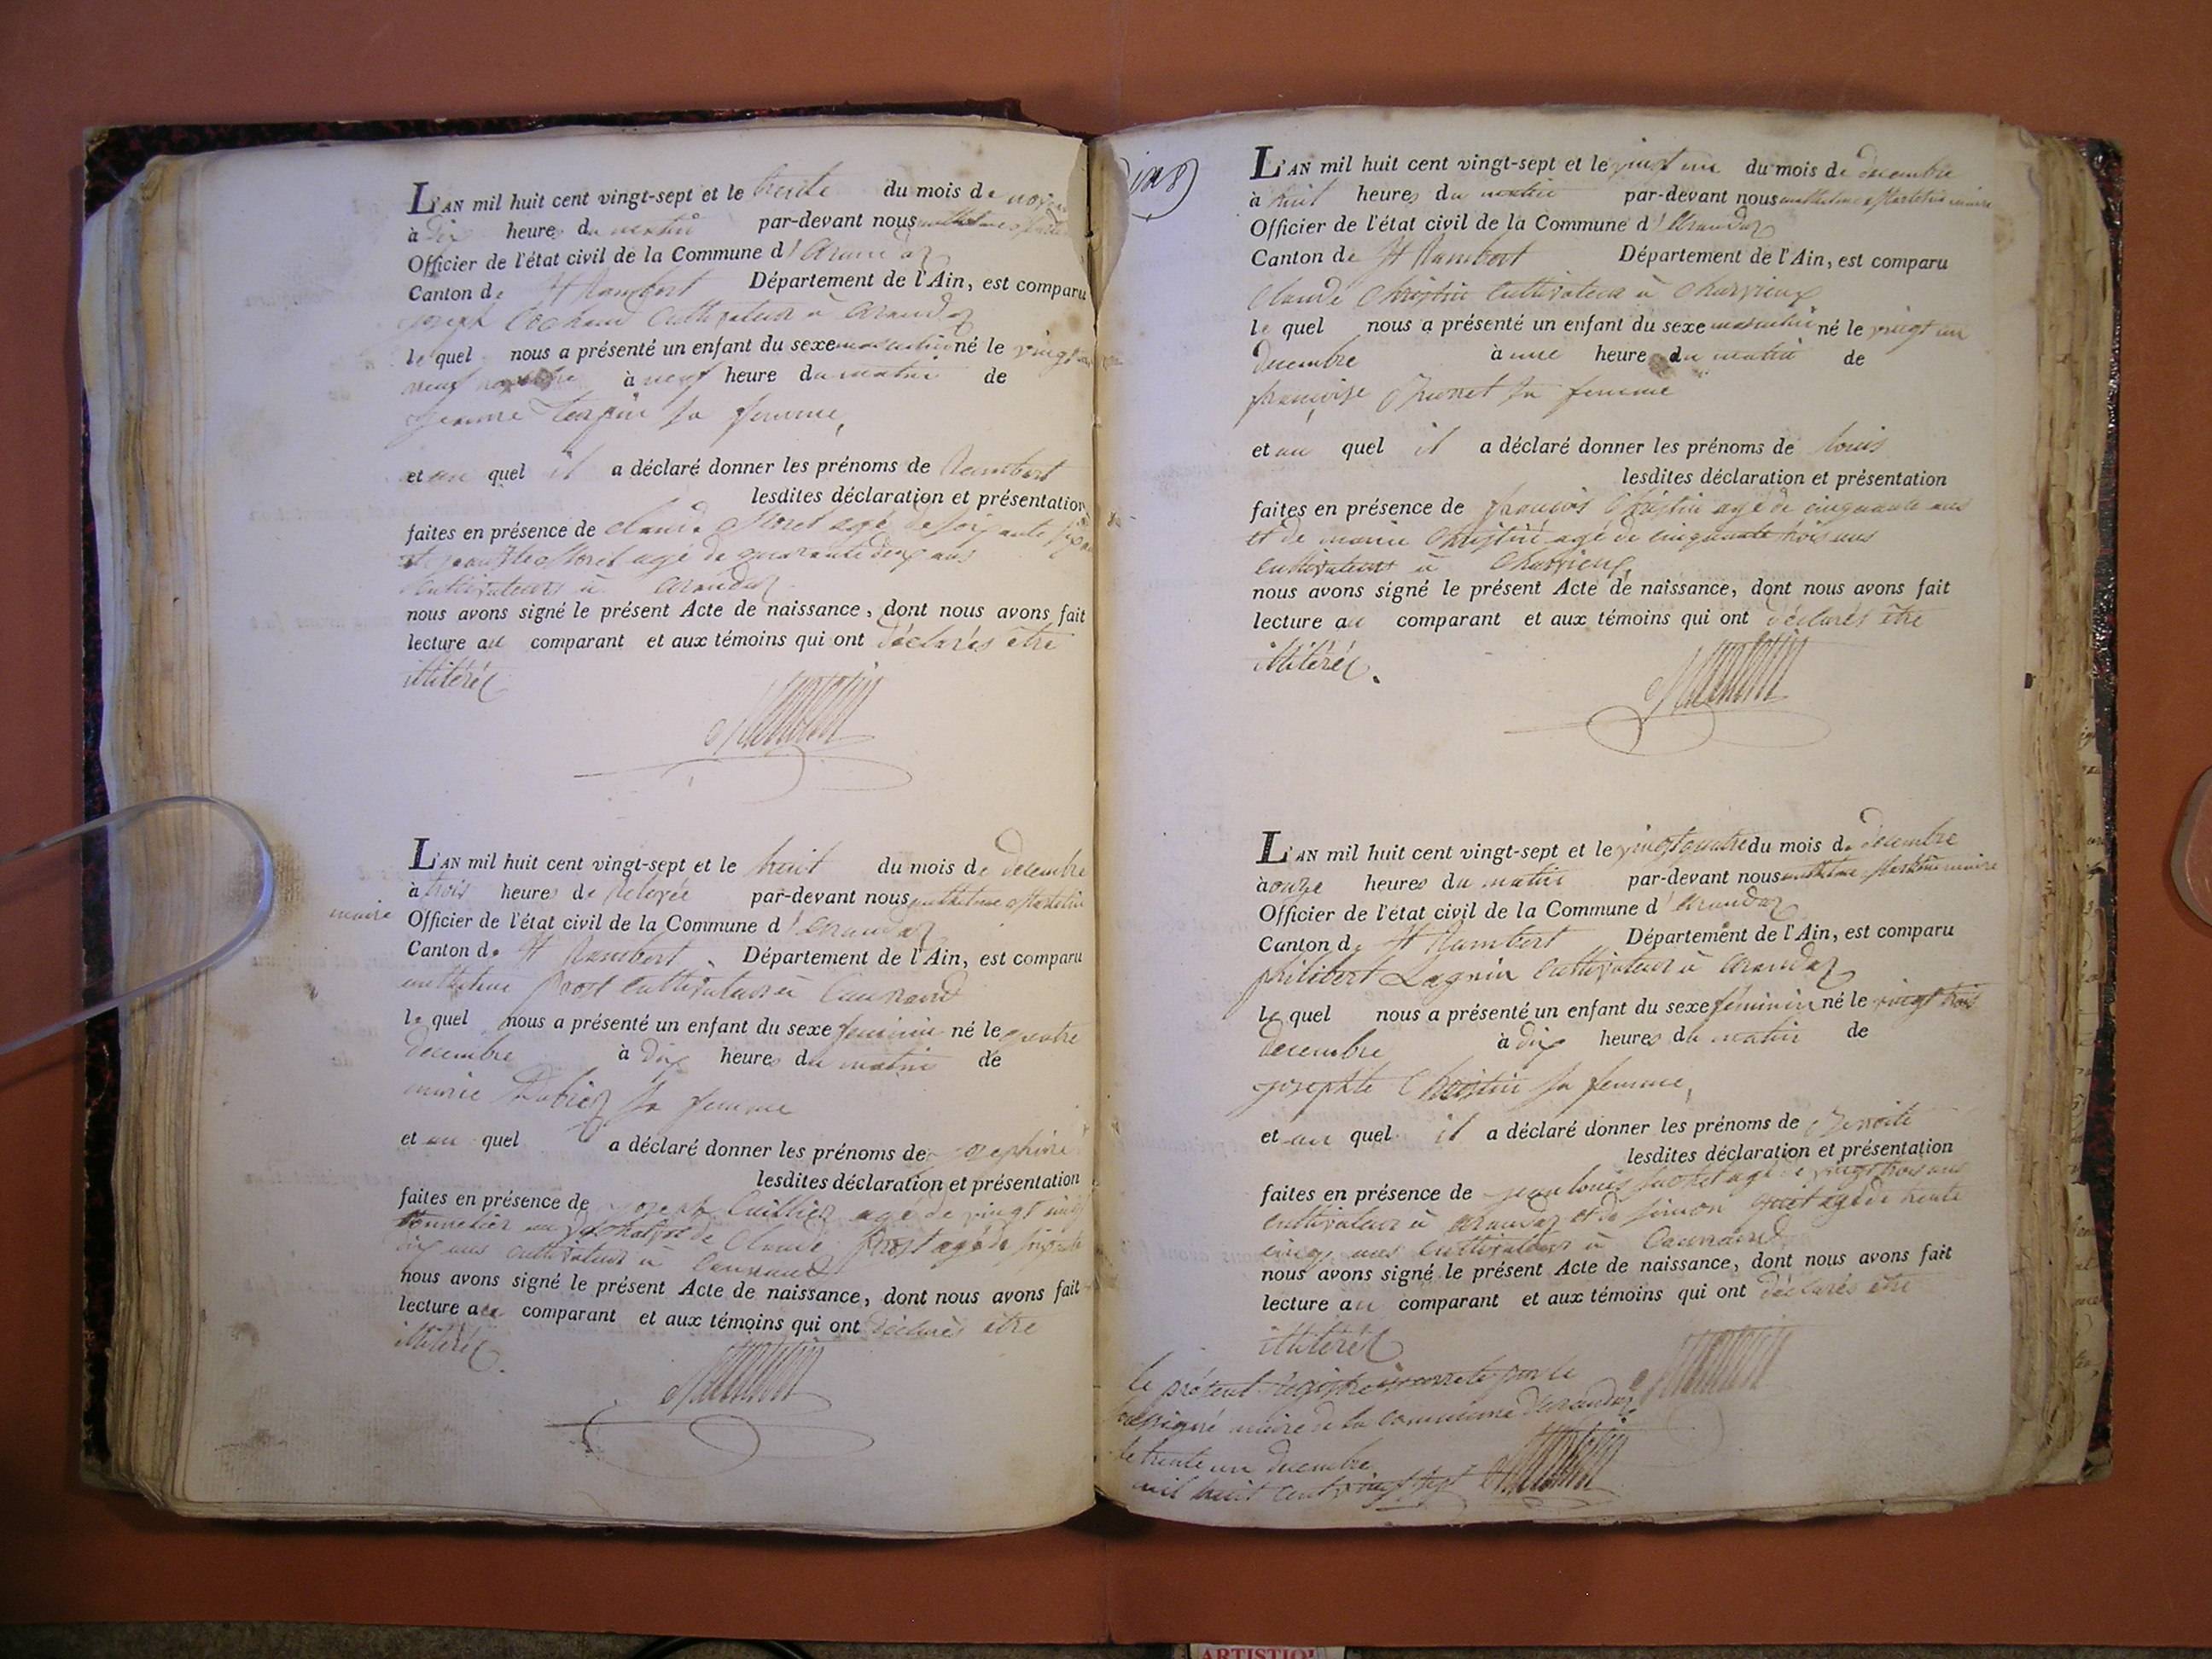 L'AN mil huit cent vingt-sept et le trente du mois de
à dix heures du matin par-devant nous
Officier de l'état civil de la Commune d'arandaz
Canton de St Rambert Département de l'Ain, est comparu
joseph Cochand Cultivateur à arandaz
le quel nous a présenté un enfant du sexe masculin né le vingt
neuf novembre à neuf heure du matin de
jeanne sa femme,
et au quel il a déclaré donner les prénoms de Rambert
lesdites déclaration et présentation
faites en présence de claude Moret agé de soixante six
et Moret agé de quarante deux ans
cultivateurs à arandaz
nous avons signé le présent Acte de naissance, dont nous avons fait
lecture au comparant et aux témoins qui ont déclarés être
illitéréz
L'AN mil huit cent vingt-sept et le huit du mois de decembre
à trois heures de relevée par-devant nous anthelme Martelin
maire Officier de l'état civil de la Commune d'arandaz
Canton de St Rambert Département de l'Ain, est comparu
anthelme prost cultivateur à
le quel nous a présenté un enfant du sexe feminin né le quatre
decembre à dix heures du matin de
marie sa femme
et au quel a déclaré donner les prénoms de josephine
lesdites déclaration et présentation
faites en présence de joseph Cuillier agé de vingt cinq
de Claude prost agé de soixante
dix ans cultivateur à
nous avons signé le présent Acte de naissance, dont nous avons fait
lecture au comparant et aux témoins qui ont déclarés être
illitéréz.
L'AN mil huit cent vingt-sept et le vingt un du mois de decembre
à huit heures du matin par-devant nous anthelme Martelin maire
Officier de l'état civil de la Commune d'arandaz
Canton de St Rambert Département de l'Ain, est comparu
Claude Christin Cultivateur à Charvieux
le quel nous a présenté un enfant du sexe masculin né le vingt un
decembre à une heure du matin de
françoise sa femme
et au quel il a déclaré donner les prénoms de louis
lesdites déclaration et présentation
faites en présence de françois Christin agé de cinquante ans
et de marie Christin agé de cinquante trois ans
cultivateurs à Charvieux,
nous avons signé le présent Acte de naissance, dont nous avons fait
lecture au comparant et aux témoins qui ont déclarés être
illitéréz.
L'AN mil huit cent vingt-sept et le vingt quatre du mois de decembre
à onze heures du matin par-devant nous anthelme Martelin maire
Officier de l'état civil de la Commune d'arandaz
Canton de St Rambert Département de l'Ain, est comparu
philibert Lagnin Cultivateur à arandaz
le quel nous a présenté un enfant du sexe féminin né le vingt trois
decembre à dix heures du matin de
josephte Christin sa femme,
et au quel il a déclaré donner les prénoms de Benoite
lesdites déclaration et présentation
faites en présence de jean louis agé de vingt trois ans
cultivateur à arandaz et de simon agé de trente
cinq ans cultivateur à
nous avons signé le présent Acte de naissance, dont nous avons fait
lecture au comparant et aux témoins qui ont déclarés être
illitéréz
le présent registre est arreté par le
soussigné maire de la commune darandaz
le trente un decembre
mil huit cent vingt sept